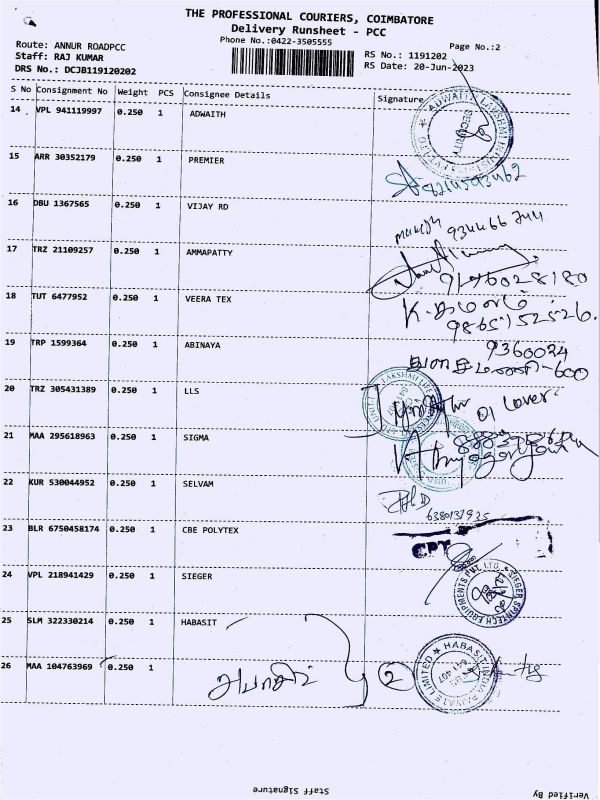 THE PROFESSIONAL COURIERS, COIMBATORE
Delivery Runsheet - PCC
Phone No.:0422-3505555
Page No.:2
Route: ANNUR ROADPCC
Staff: RAJ KUMAR
DRS No.: DCJB119120202
RS No.: 1191202
RS Date: 20-Jun-2023
S No Consignment No Weight PCS Consignee Details Signature
14 VPL 941119997 0.250 1 ADWAITH
15 ARR 30352179 0.250 1 PREMIER
16 DBU 1367565 0.250 1 VIJAY RD
17 TRZ 21109257 0.250 1 AMMAPATTY
9176028180
18 TUT 6477952 0.250 1 VEERA TEX
9865152526.
19 TRP 1599364 0.250 1 ABINAYA
9360024
600
20 TRZ 305431389 0.250 1 LLS
01 cover
21 MAA 295618963 0.250 1 SIGMA
22 KUR 530044952 0.250 1 SELVAM
6380137935
23 BLR 6750458174 0.250 1 CBE POLYTEX
24 VPL 218941429 0.250 1 SIEGER
SIEGER SPINTECH EQUIPMENTS PVT. LTD.
25 SLM 322330214 0.250 1 HABASIT
26 MAA 104763969 0.250 1
2
HABASIT INDIA PRIVATE LIMITED
Staff Signature
Verified By